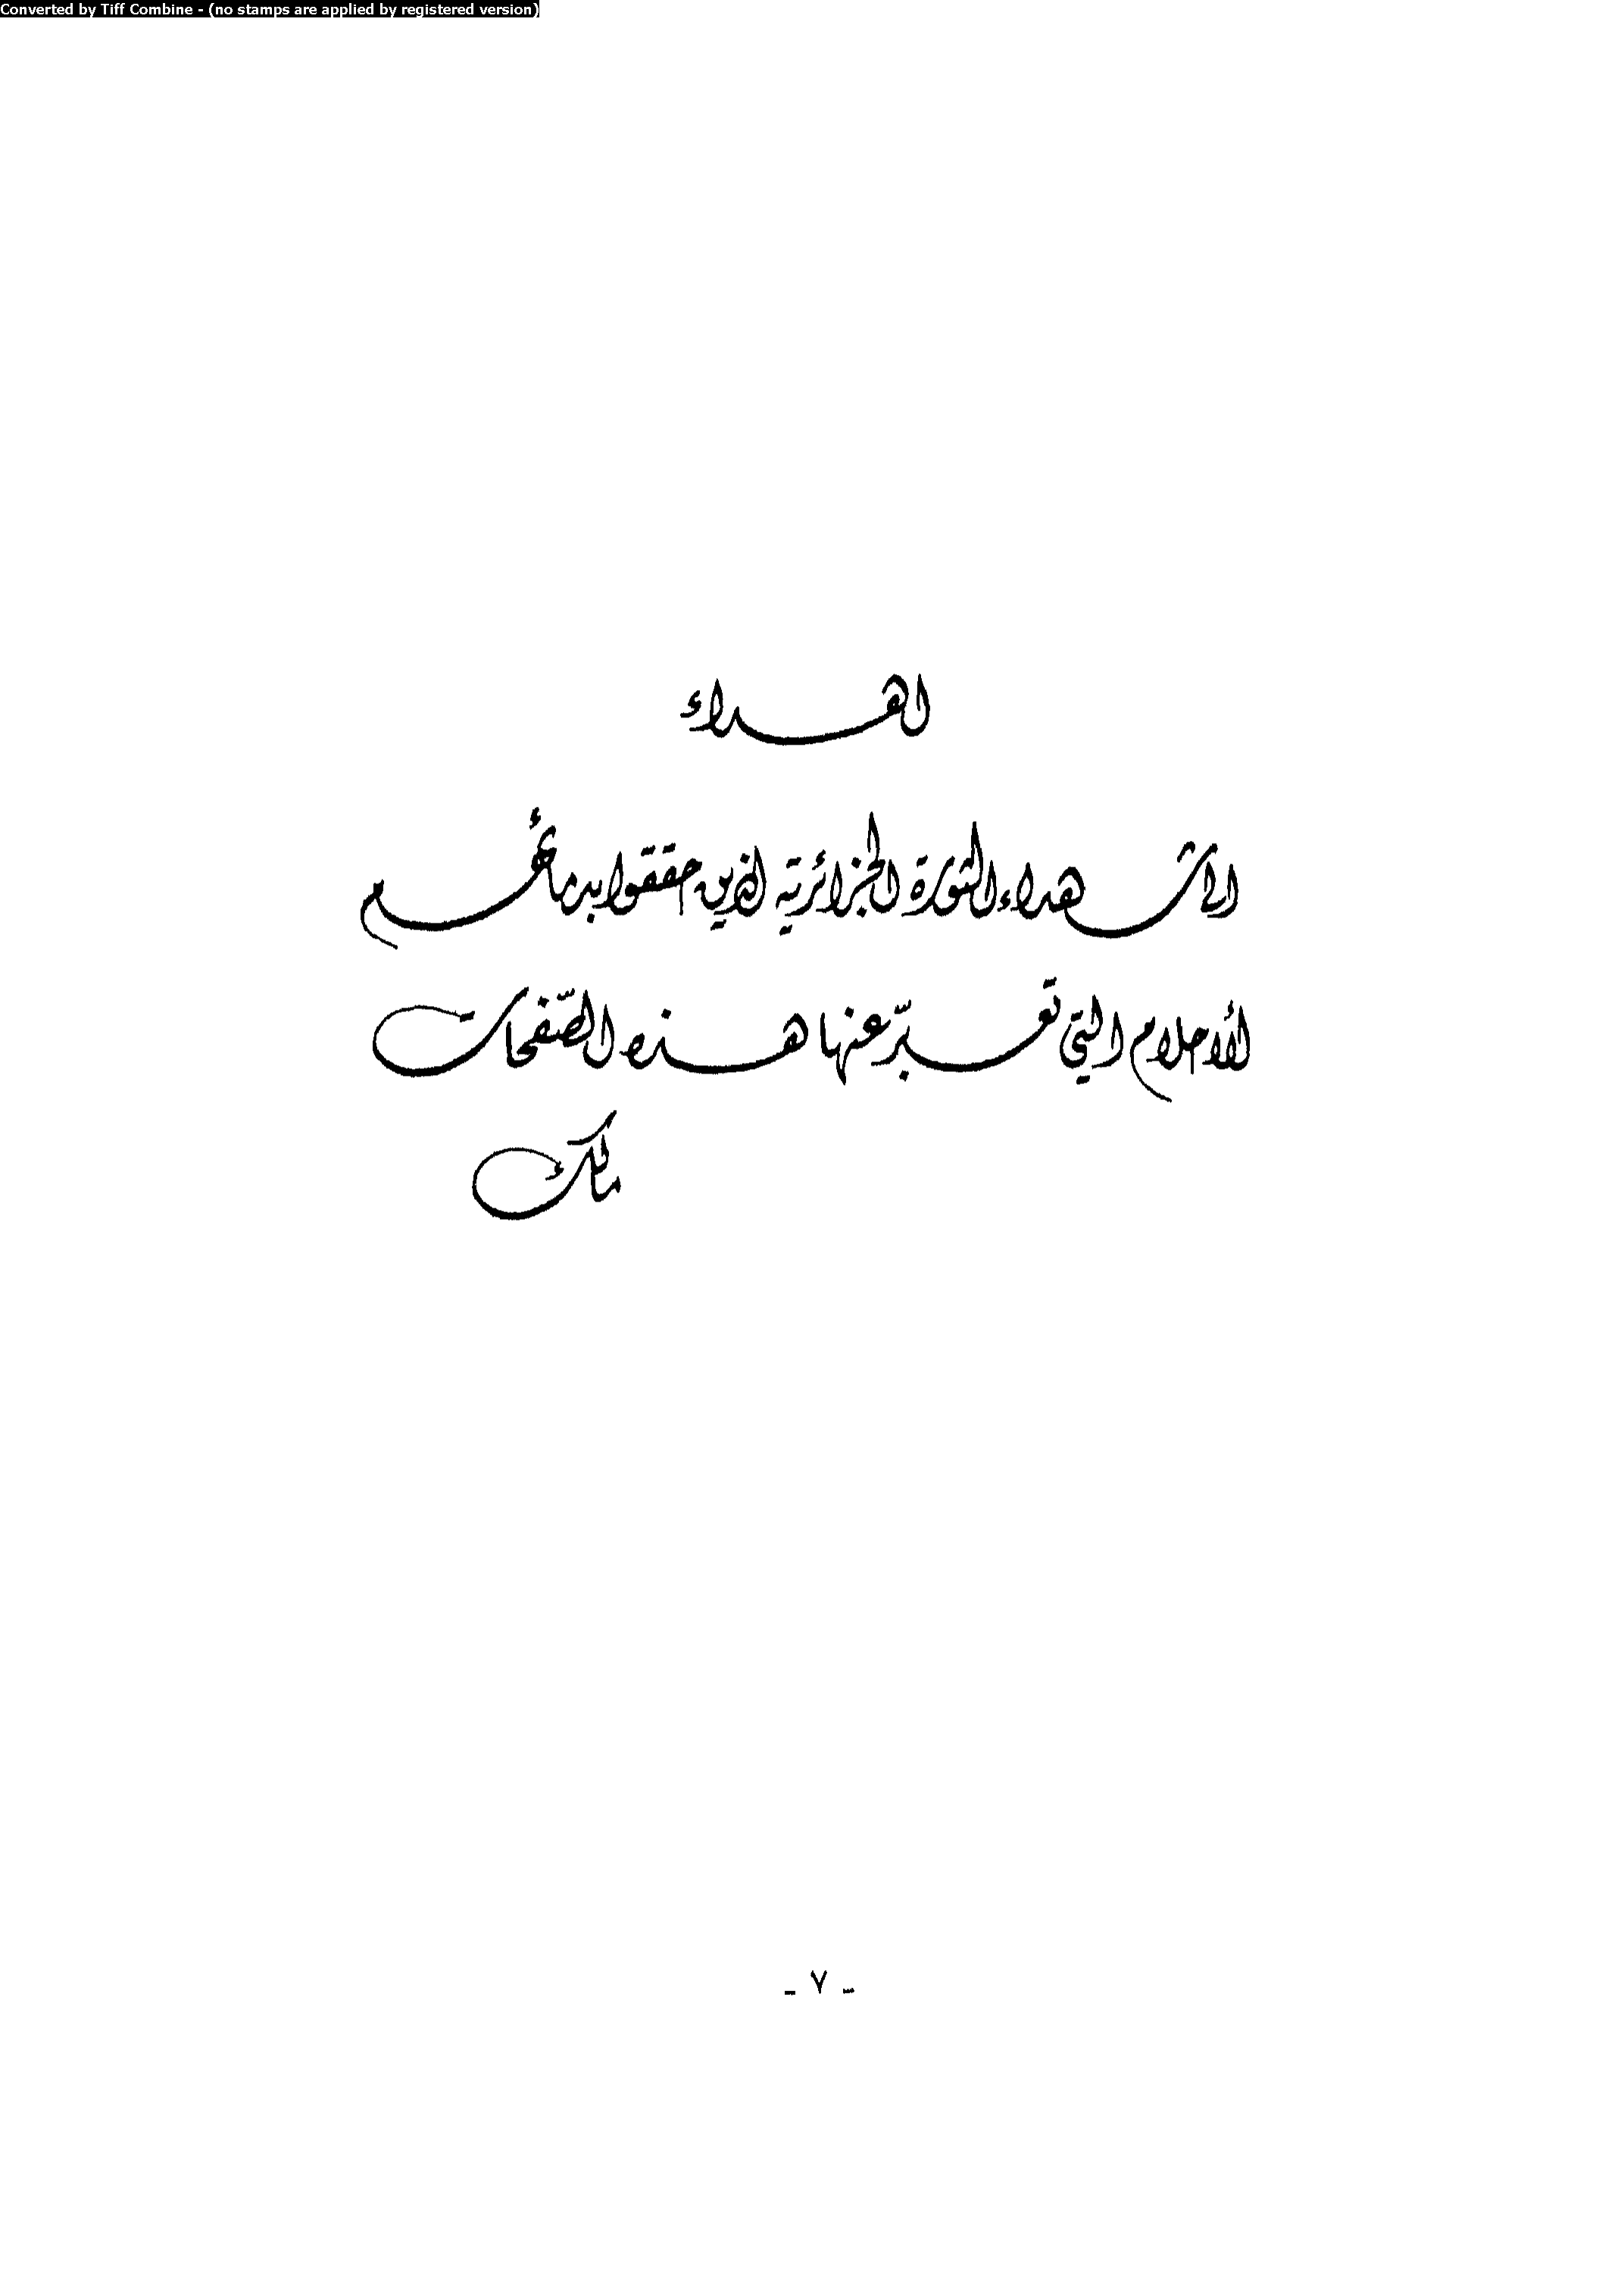 Converted by Tiff Combine - (no stamps are applied by registered version)
اهداء
الى شهداء الثورة الجزائرية الذين حققوا بدمائهم
الأحلام التي تعبّر عنها هذه الصّفحات
مالك
- ٧ -